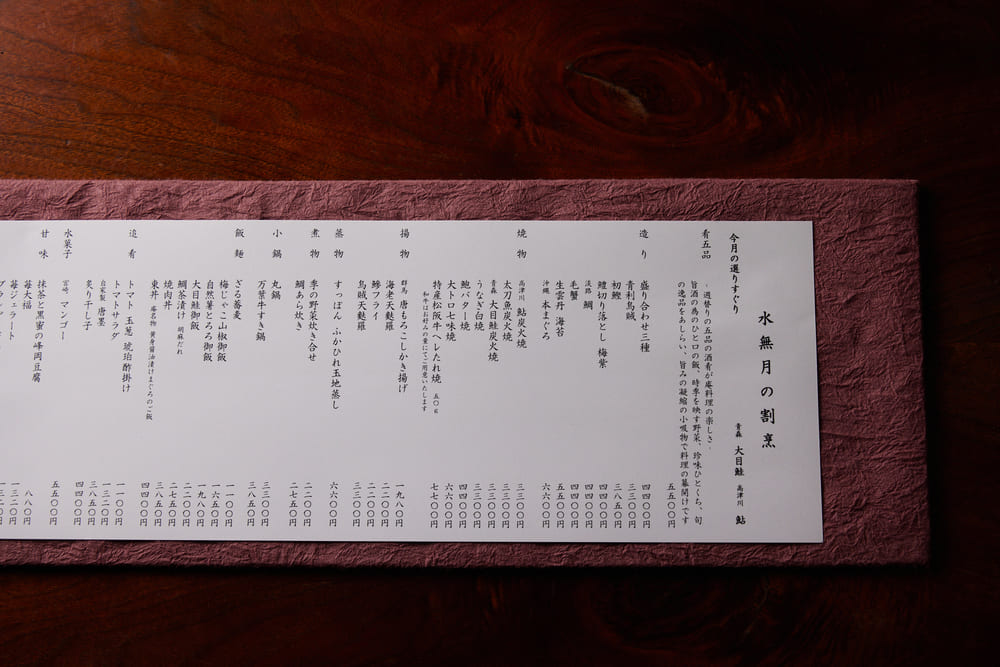 水無月の割烹
青森 大目鮭 高津川 鮎
今月の選りすぐり
肴五品
週替りの五品の酒肴が庵料理の楽しさ、
旨酒の為のひと口の飯、時季を映す野菜、珍味ひとくち、旬
の逸品をあしらい、旨みの凝縮の小吸物で料理の幕開けです
五五〇〇円
造り
盛り合わせ三種 四四〇〇円
青利烏賊 三三〇〇円
初鰹 三八五〇円
鱧切り落とし 梅紫 四四〇〇円
淡路 鯛 四四〇〇円
毛蟹 四四〇〇円
生雲丹 海苔 五五〇〇円
沖縄 本まぐろ 六六〇〇円
焼物
高津川 鮎炭火焼 三三〇〇円
太刀魚炭火焼 三三〇〇円
青森 大目鮭炭火焼 三三〇〇円
うなぎ白焼 三三〇〇円
鮑バター焼 六六〇〇円
大トロ七味焼 六六〇〇円
特産松阪牛ヘレたれ焼 五〇g 七七〇〇円
和牛はお好みの量にてご用意いたします
揚物
群馬 唐もろこしかき揚げ 一九八〇円
海老天麩羅 二二〇〇円
鯵フライ 二二〇〇円
烏賊天麩羅 三三〇〇円
蒸物
すっぽん ふかひれ玉地蒸し 六六〇〇円
煮物
季の野菜炊き合せ 二二〇〇円
鯛あら炊き 二七五〇円
小鍋
丸鍋 三三〇〇円
万葉牛すき鍋 三三〇〇円
飯麺
ざる蕎麦 一一〇〇円
梅じゃこ山椒御飯 一六五〇円
自然薯とろろ御飯 一九八〇円
大目鮭御飯 二二〇〇円
鯛茶漬け 胡麻だれ 二七五〇円
焼肉丼 二二〇〇円
東丼 庵名物 黄身醤油漬けまぐろのご飯 四四〇〇円
追肴
トマト 玉葱 琥珀酢掛け 一一〇〇円
トマトサラダ 一三二〇円
自家製 唐墨 三八五〇円
炙り干し子 四四〇〇円
水菓子
宮崎 マンゴー 五五〇〇円
甘味
抹茶と黒蜜の峰岡豆腐 八八〇円
苺大福 一三二〇円
苺ジェラート